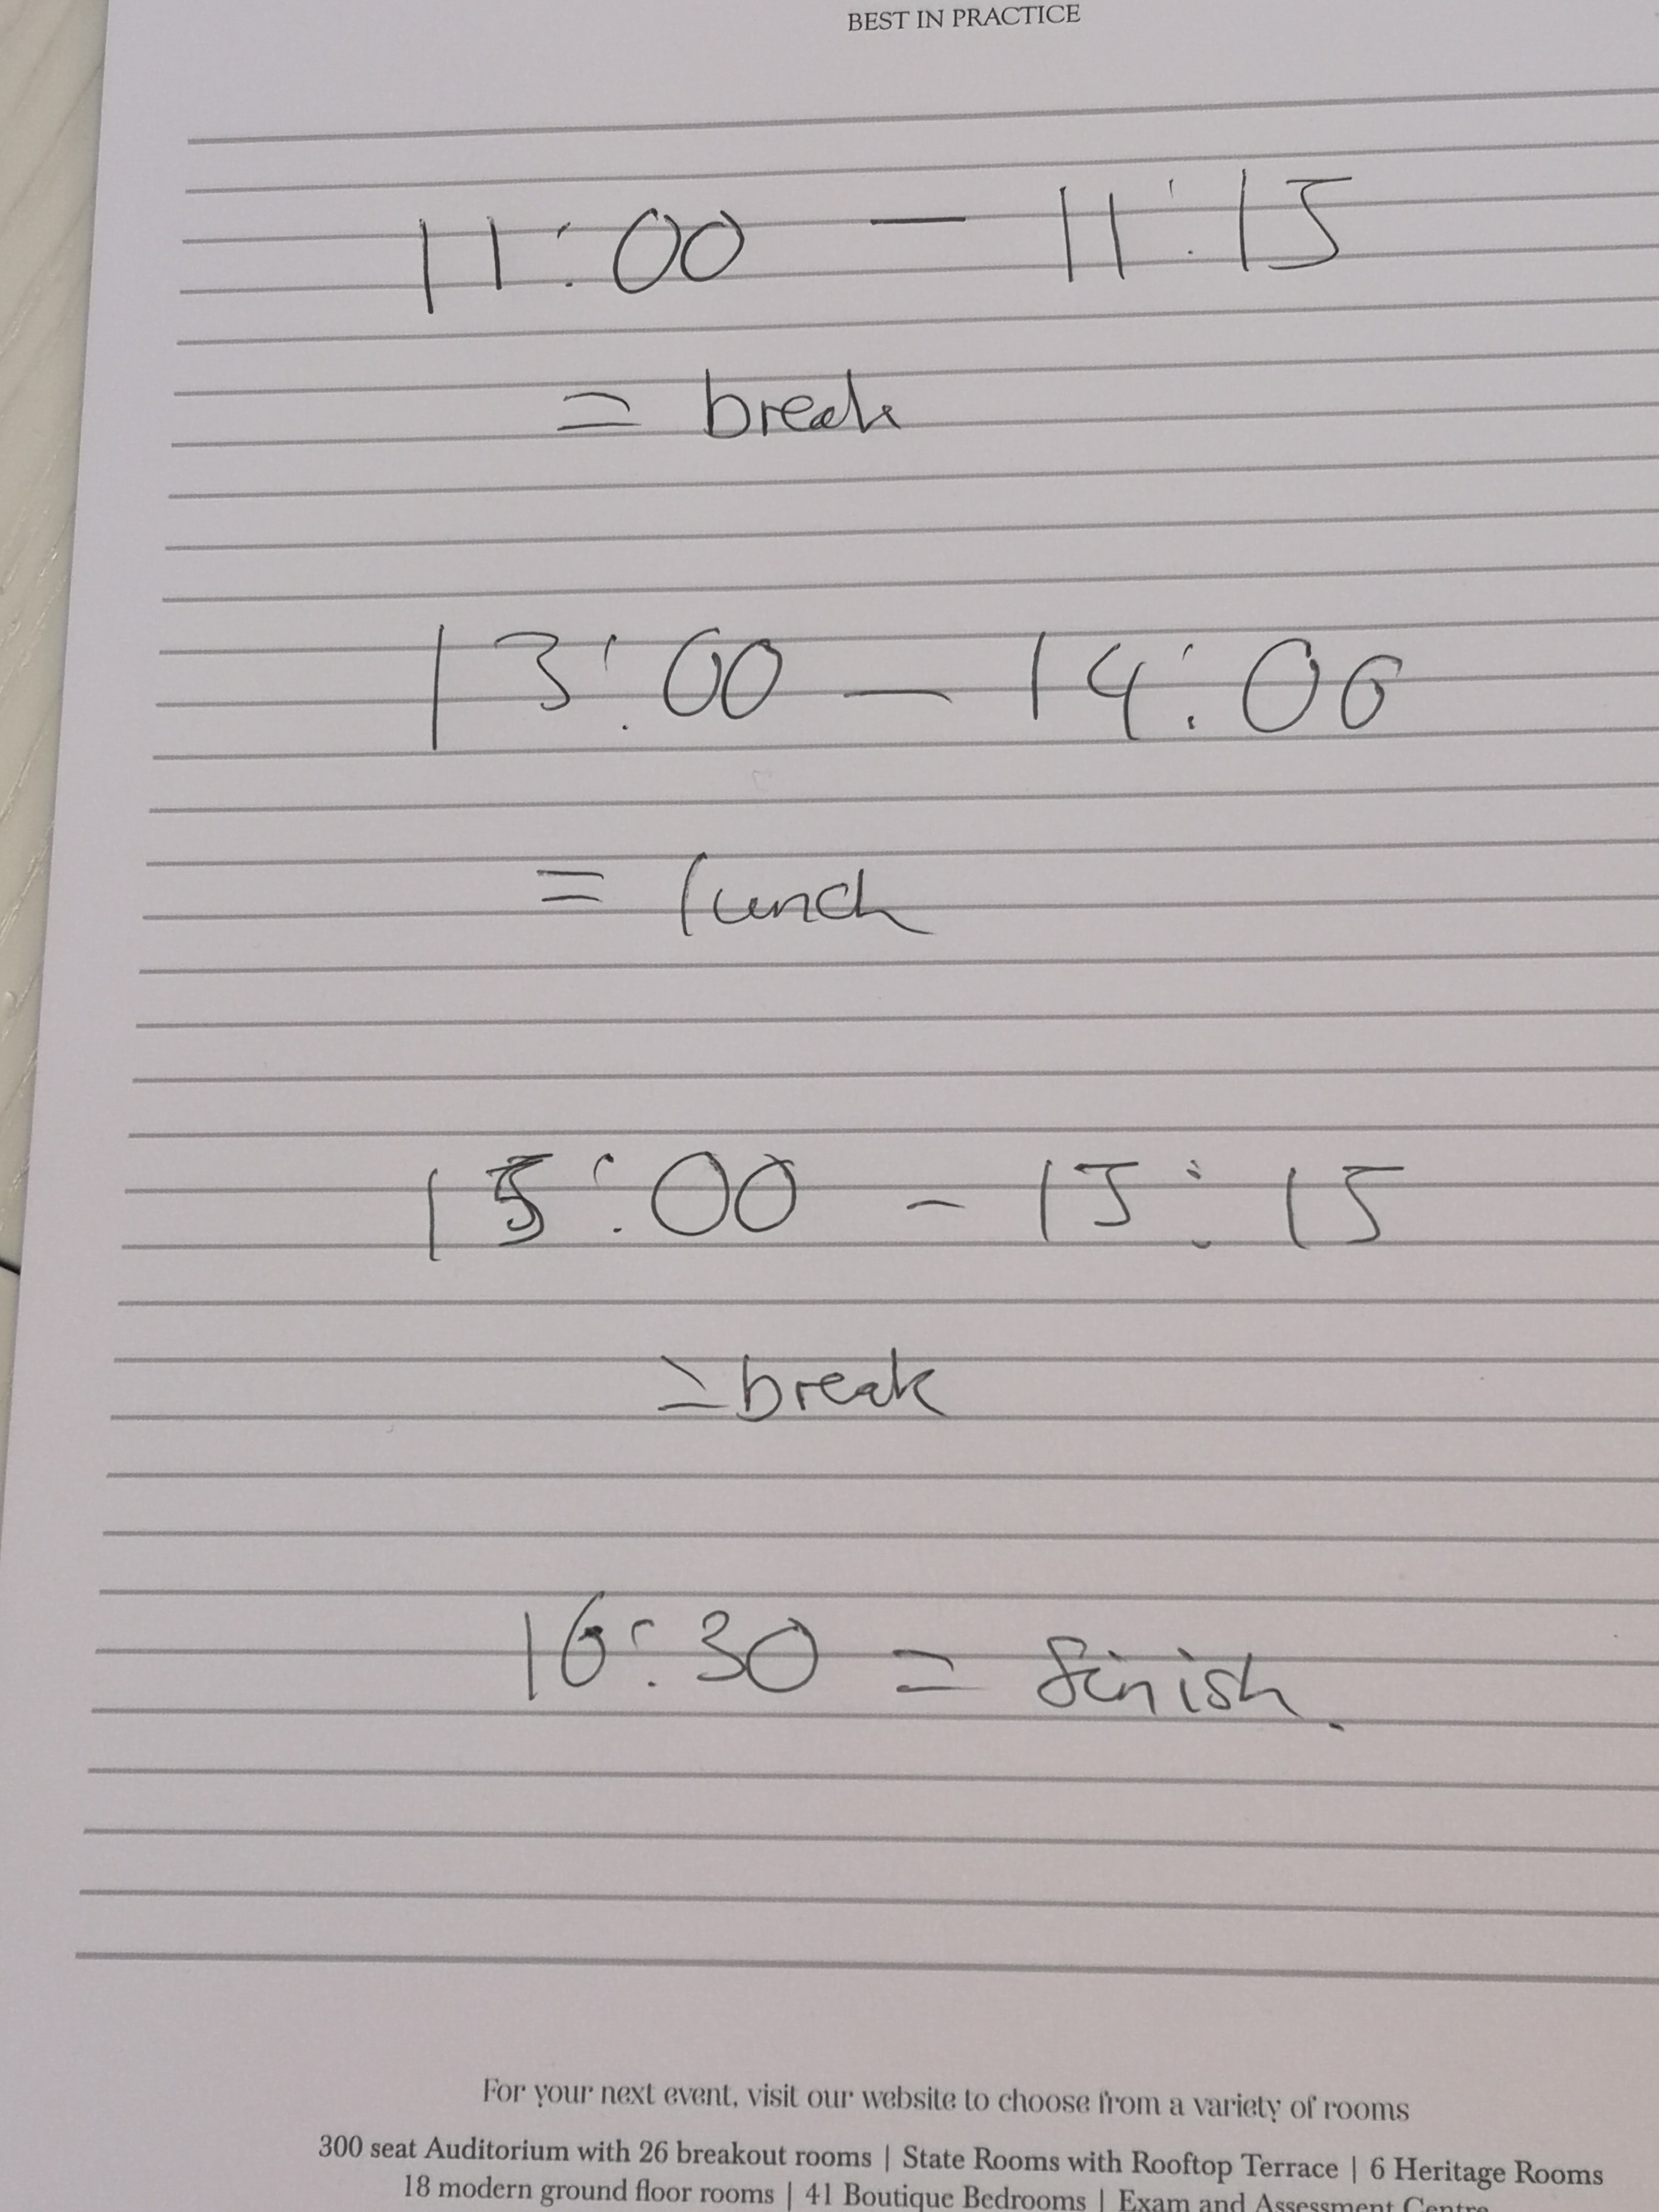 BEST IN PRACTICE
11:00 — 11:15
= break
13:00 — 14:00
= lunch
15:00 - 15:15
= break
16:30 = finish.
For your next event, visit our website to choose from a variety of rooms
300 seat Auditorium with 26 breakout rooms | State Rooms with Rooftop Terrace | 6 Heritage Rooms
18 modern ground floor rooms | 41 Boutique Bedrooms | Exam and Assessment Centre